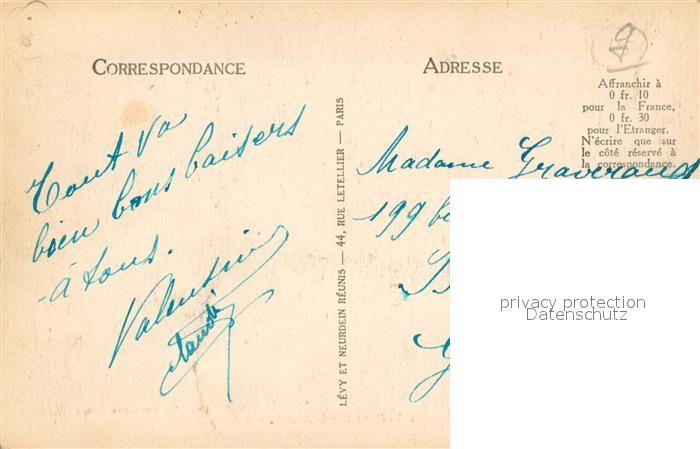 CORRESPONDANCE
Tout va
bien bons baisers
à tous.
Valentin
LÉVY ET NEURDEIN RÉUNIS — 44, RUE LETELLIER — PARIS
ADRESSE
Affranchir à
0 fr. 10
pour la France,
0 fr. 30
pour l'Etranger.
N'écrire que sur
le côté réservé à
la correspondance.
Madame Graveraud
199
privacy protection
Datenschutz